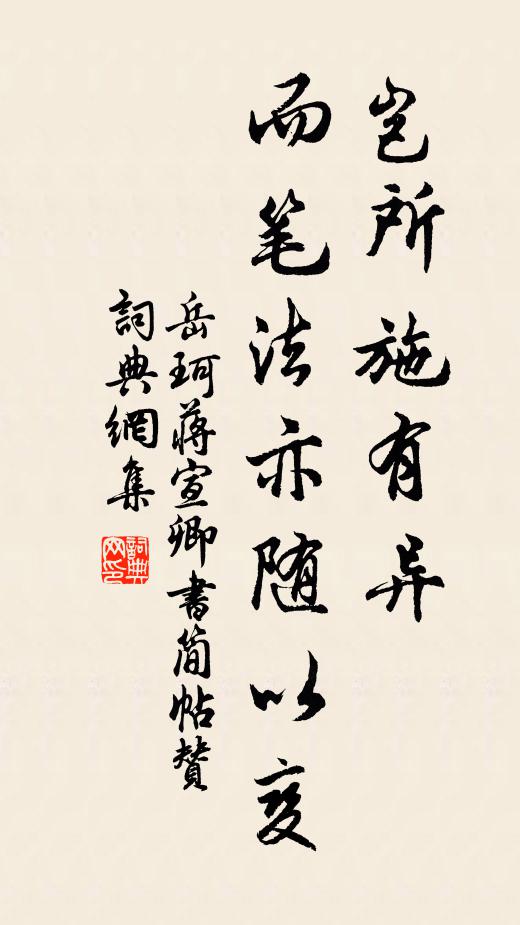 岂所施有异
而笔法亦随以变
岳珂蒋宣卿書简帖贊
詞典網集
詞典网印